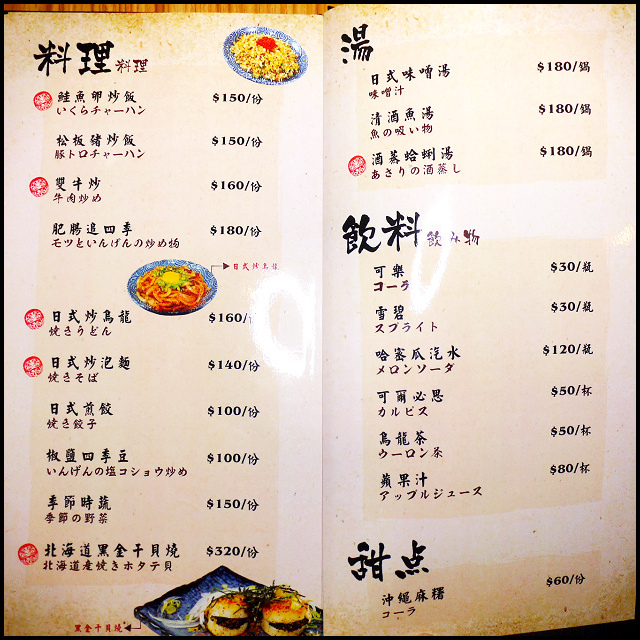 料理 料理
鮭魚卵炒飯 $150/份
いくらチャーハン
松板豬炒飯 $150/份
豚トロチャーハン
雙牛炒 $160/份
牛肉炒め
肥腸追四季 $180/份
モツといんげんの炒め物
日式炒烏龍
日式炒烏龍 $160/
焼きうどん
日式炒泡麵 $140/份
焼きそば
日式煎餃 $100/份
焼き餃子
椒鹽四季豆 $100/份
いんげんの塩コショウ炒め
季節時蔬 $150/份
季節の野菜
北海道黑金干貝燒 $320/份
北海道産焼きホタテ貝
黑金干貝燒
湯
日式味噌湯 $180/鍋
味噌汁
清酒魚湯 $180/鍋
魚の吸い物
酒蒸蛤蜊湯 $180/鍋
あさりの酒蒸し
飲料 飲み物
可樂 $30/瓶
コーラ
雪碧 $30/瓶
スプライト
哈密瓜汽水 $120/瓶
メロンソーダ
可爾必思 $50/杯
カルピス
烏龍茶 $50/杯
ウーロン茶
蘋果汁 $80/杯
アップルジュース
甜点
沖繩麻糬 $60/份
コーラ